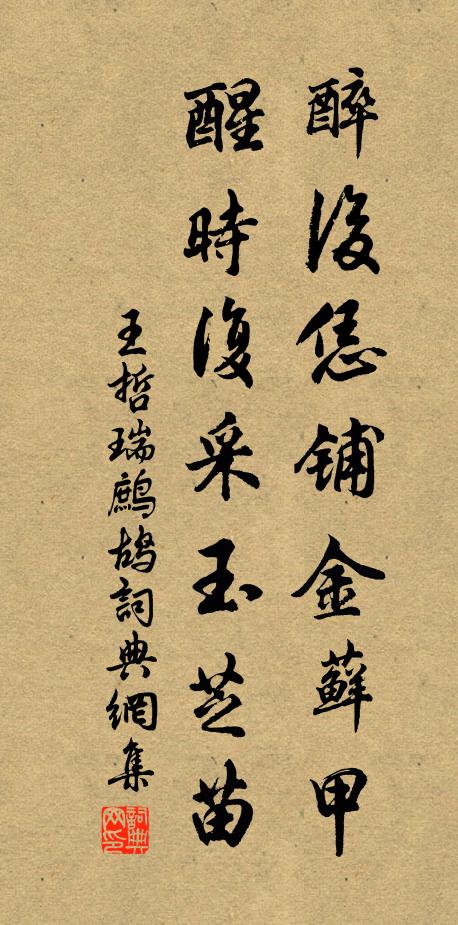 醉後恁鋪金蘚甲
醒時復采玉芝苗
王哲瑞鷓鴣詞典網集
詞典
网印